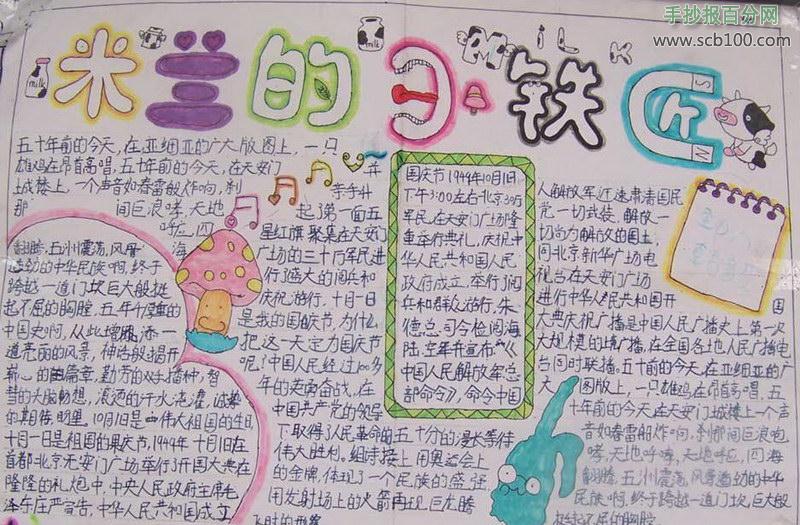 手抄报百分网
www.scb100.com
米兰的小铁匠
milk
milk
MILK
S
N
五十年前的今天,在亚细亚的广大版图上,一只
雄鸡在昂首高唱,五十年前的今天,在天安门
城楼上,一个声音如春雷般炸响,刹
那间巨浪哮,天地
呼应,四海
翻腾,五洲震荡,风骨
的中华民族啊,终于
跨越一道门坎巨大般挺
起不屈的胸膛,五千年
中国史啊,从此增添
道亮丽的风景,
智
慧的大脑畅想,滚烫的汗水浇灌,诚挚
的期待
10月1日是伟大祖国的生日
十月一日是祖国的国庆节,1949年十月1日在
首都北京天安门广场举行了开国大典在
隆隆的礼炮中,中央人民政府主席毛
泽东庄严宣告,中华人民共和国成立
并
亲手升
起了第一面五
星红旗聚集在天安门
广场的三十万军民进
行了盛大的阅兵和
庆祝游行,十月一日
是我的国庆节,为什么
把这一天定为国庆节
呢?中国人民经过100多
年的英勇奋战,在
中国共产党的领导
下取得了人民革命的
伟大胜利。
国庆节1949年10月1日
下午3:00左右北京30万
军民在天安门广场隆
重举行典礼,庆祝中
华人民共和国人民
政府成立,举行了阅
兵和群众游行,朱
德总司令检阅海
陆空军并宣布《
中国人民解放军总
部命令》,命令中国
人解放军迅速肃清国民
党一切武装,解放一
切尚未解放的国土,
同北京新华广场电
视台在天安门广场
进行中华人民共和国开国
大典庆祝广播是中国人民广播史上第一次
大规模的广播,在全国各地人民广播电
台同时联播。五十前的今天,在亚细亚的广
大图版上,一只雄鸡在昂首高唱,五
十年前的今天在天安门城楼上一个声
音如春雷般炸响,刹那间巨浪咆
哮,天地呼哮,天地呼应,四海
翻腾,五洲震荡,风骨的中华
民族啊,终于跨越一道门坎,巨大般
五十分的漫长等待
用奥运会上
的金牌,体现了一个民族的盛强
用发射场上的火箭再现巨龙腾
飞时的